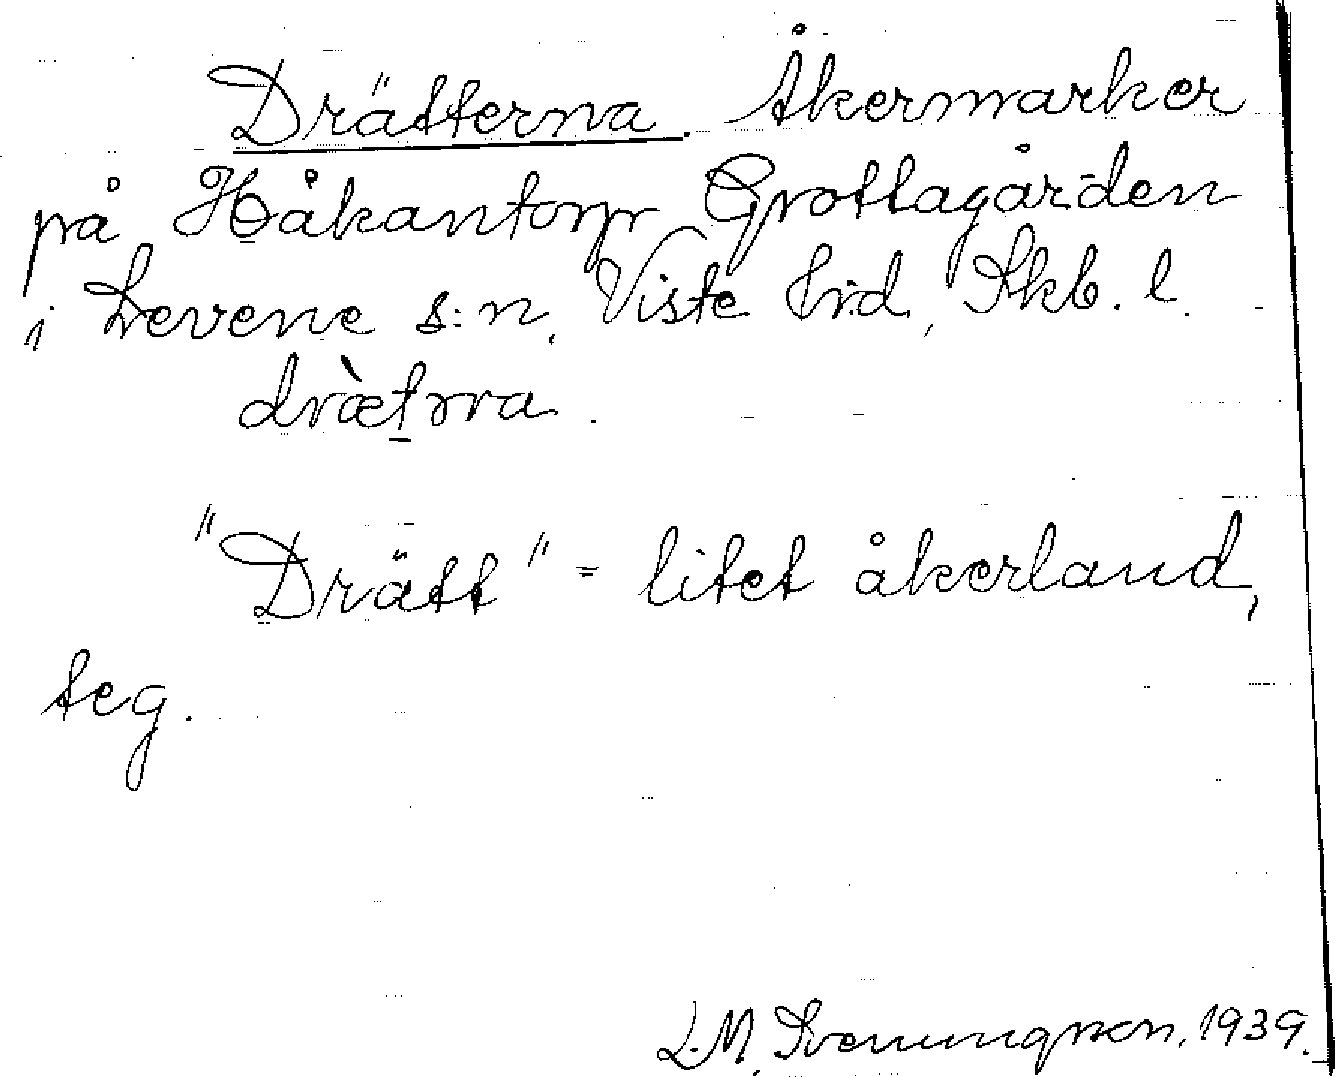 Drätterna. Åkermarker
på Håkantorp Grottagården
i Levene s:n, Viste hrd, Skb. l.
dræ̀t̠rna.
"Drätt" = litet åkerland,
teg.
L.M. Svenungsson, 1939.